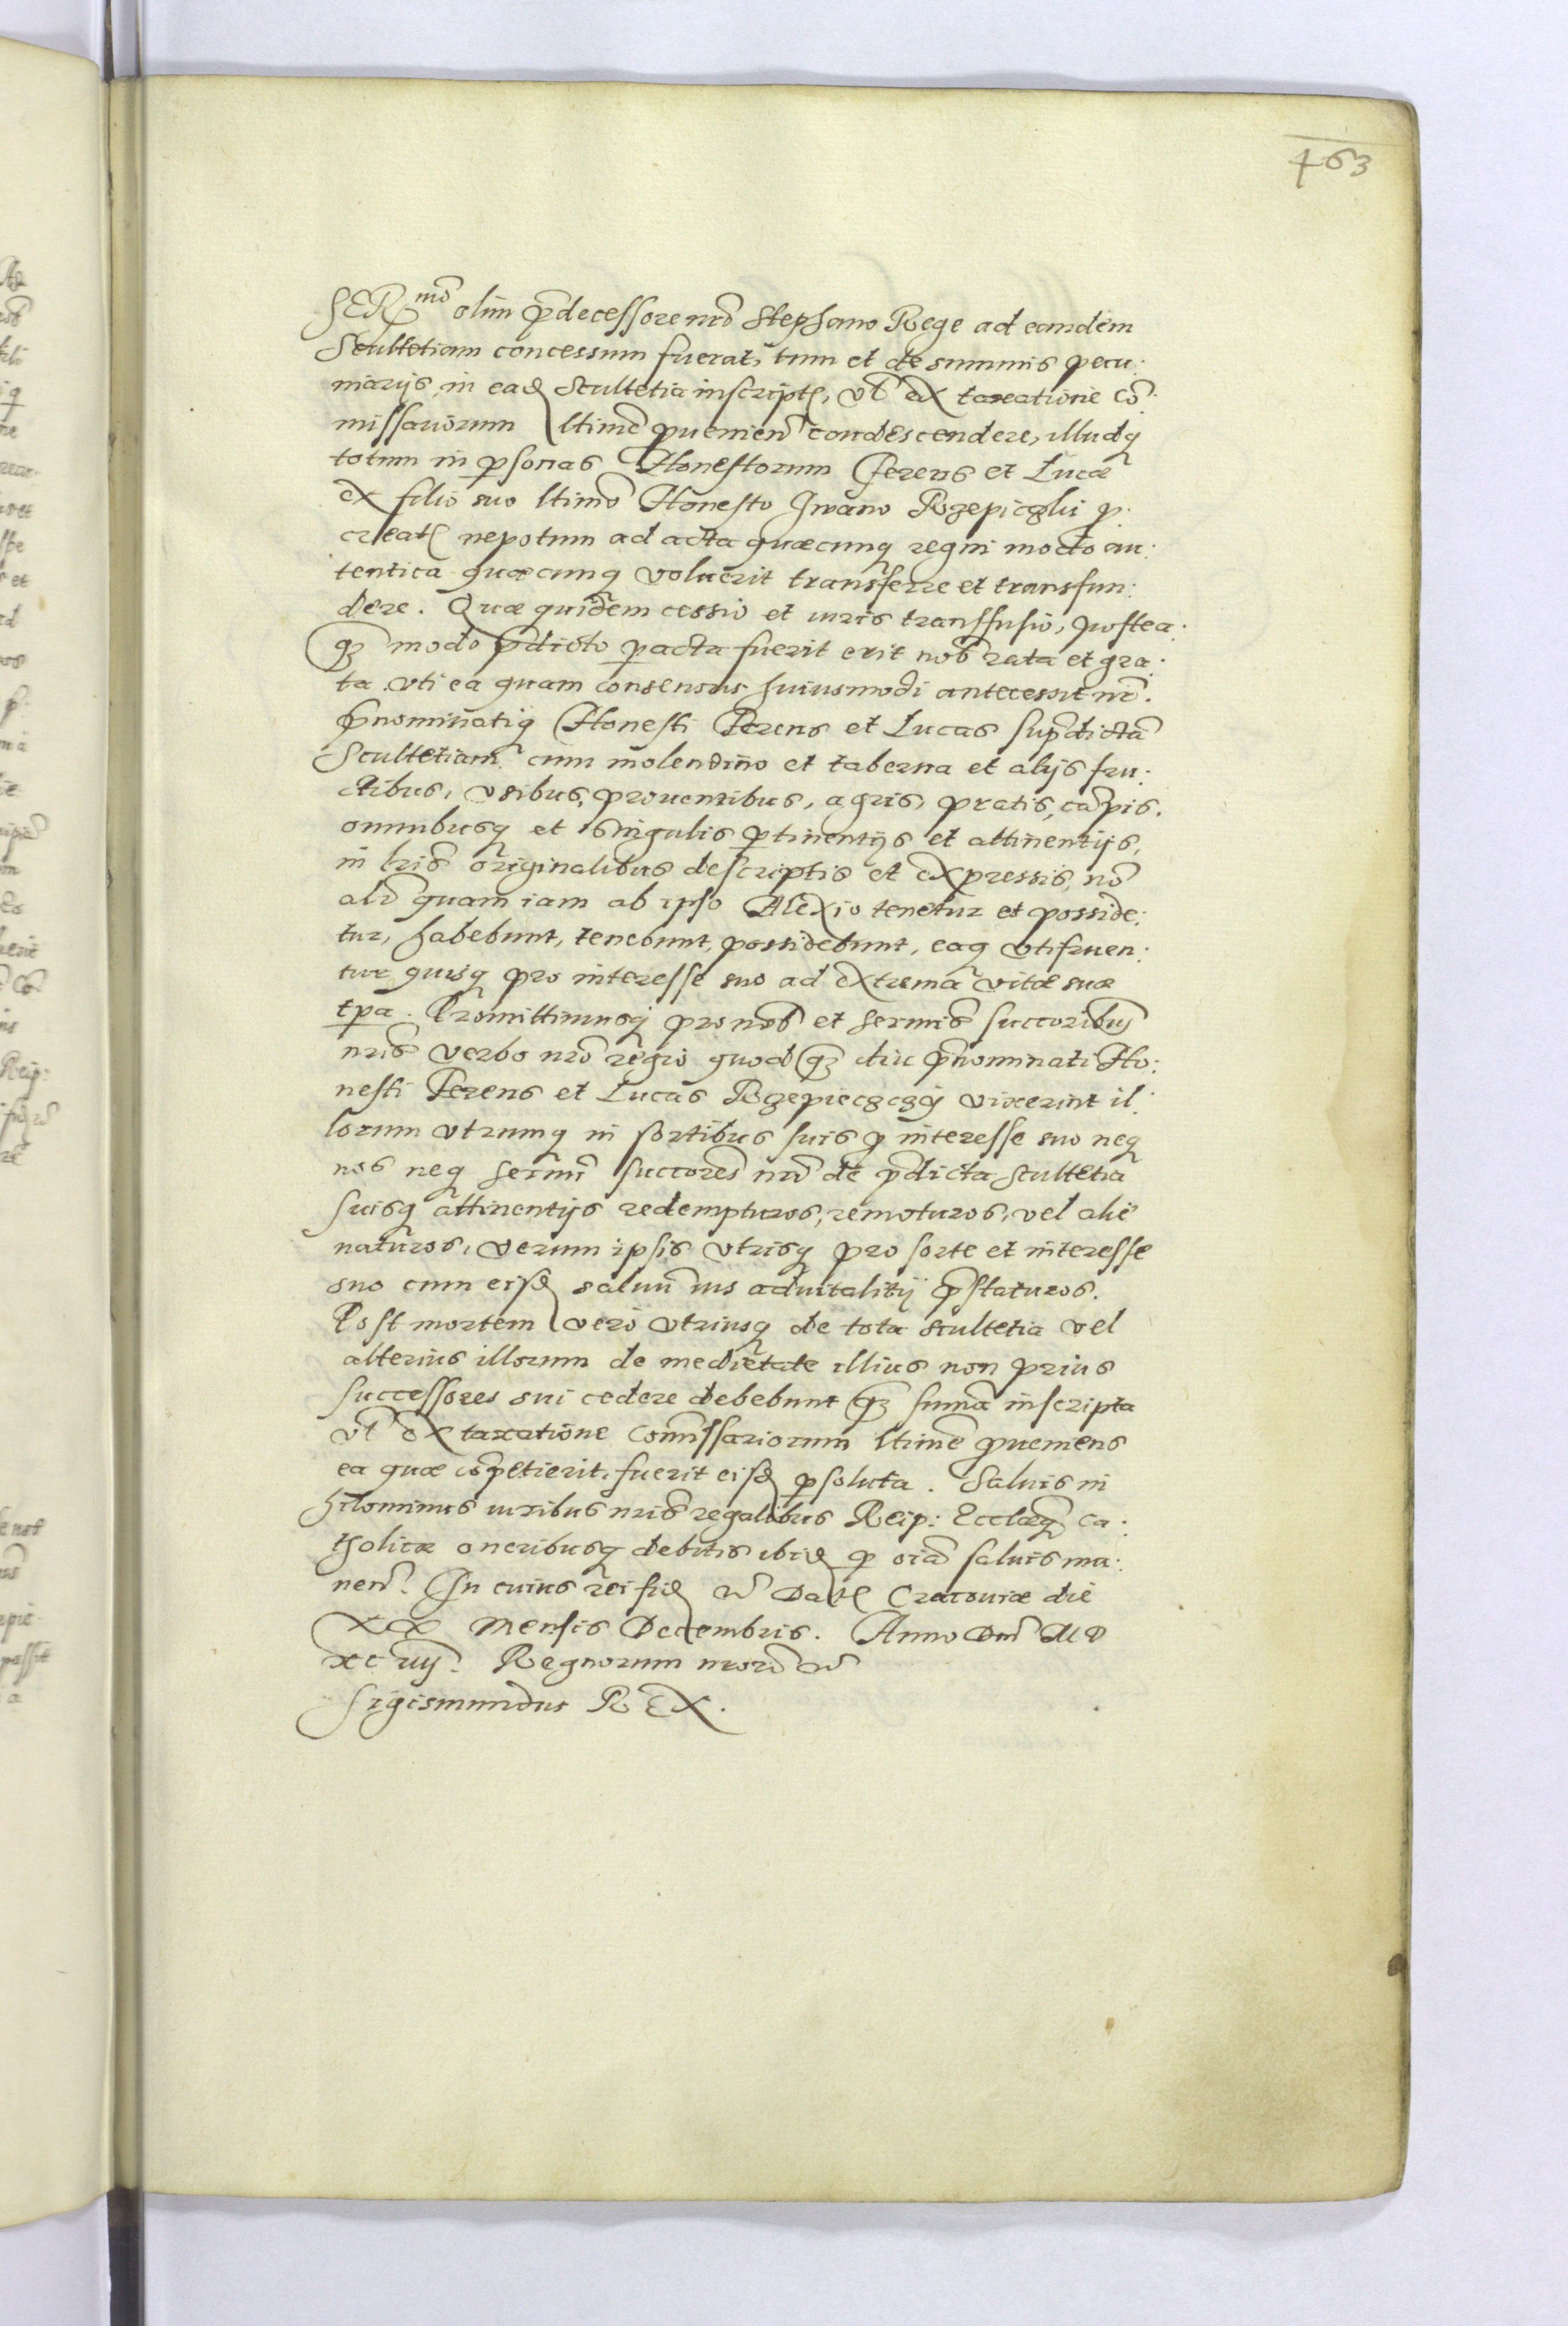 463
SERmo olim p̄decessore nrō Stephano Rege ad eandem
Scultetiam concessum fuerat, tum et de summis pecu:
niarijs in ead Scultetia inscript, vl̄ ex taxatione cō:
missariorum ltimē ꝓuenien̄ condescendere, illudq
totum in ꝑsonas Honestorum Ferens et Lucæ
ex filio suo ltimō Honesto Iwano Rzepiczki ꝓ:
creat nepotum ad acta quæcunq regni modo au:
tentica quæcunq voluerit transferre et transfun:
dere. Quæ quidem cessio et iuris transfusio, postea:
qꝫ modo p̄dicto ꝑacta fuerit erit nob̄ rata et gra:
ta vti ea quam consensus huiusmodi antecessit nr̄.
P̄nominatiq Honesti Ferens et Lucas sup̄dictā
Scultetiam cum molendino et taberna et alijs fru:
ctibus, vsibus, prouentibus, agris, pratis, cāpis,
omnibusq et singulis ꝑtinentijs et attinentijs,
in lrīs originalibus descriptis et expressis, nō
alr̄ quam iam ab ipso Alexio tenetur et posside:
tur, habebunt, tenebunt, possidebunt, eaq vtifruen:
tur quisq pro interesse suo ad extrema vitæ suæ
tpa. Promittimusq pro nob̄ et sermīs succoribus
nrīs verbo nrō regio quod qꝫ diu p̄nominati Ho:
nesti Ferens et Lucas Rzepieczczy vixerint il:
lorum vtrumq in sortibus suis ꝓ interesse suo neq
nos neq sermī succores nrī de p̄dicta scultetia
suisq attinentijs redempturos, remoturos, vel alie
naturos, verum ipsis vtrisq pro sorte et interesse
suo cum eisd saluū ius aduitalitij p̄staturos.
Post mortem vero vtriusq de tota scultetia vel
alterius illorum de medietate illius non prius
successores sui cedere debebunt qꝫ summa inscripta
vl̄ ex taxatione com̄issariorum ltimē ꝓueniens
ea quæ cōpetierit, fuerit eisd ꝑsoluta. Saluis ni
hilominus iuribus nrīs regalibus Reip: Ecclæq ca:
tholicæ oneribusq debitis ibid ꝑ oīa saluis ma:
nen̄. In cuius rei fid Dat Cracouiæ die
XX Mensis Decembris. Anno Dnī M D
xc vij. Regnorum nrorū
Sigismundus REX.